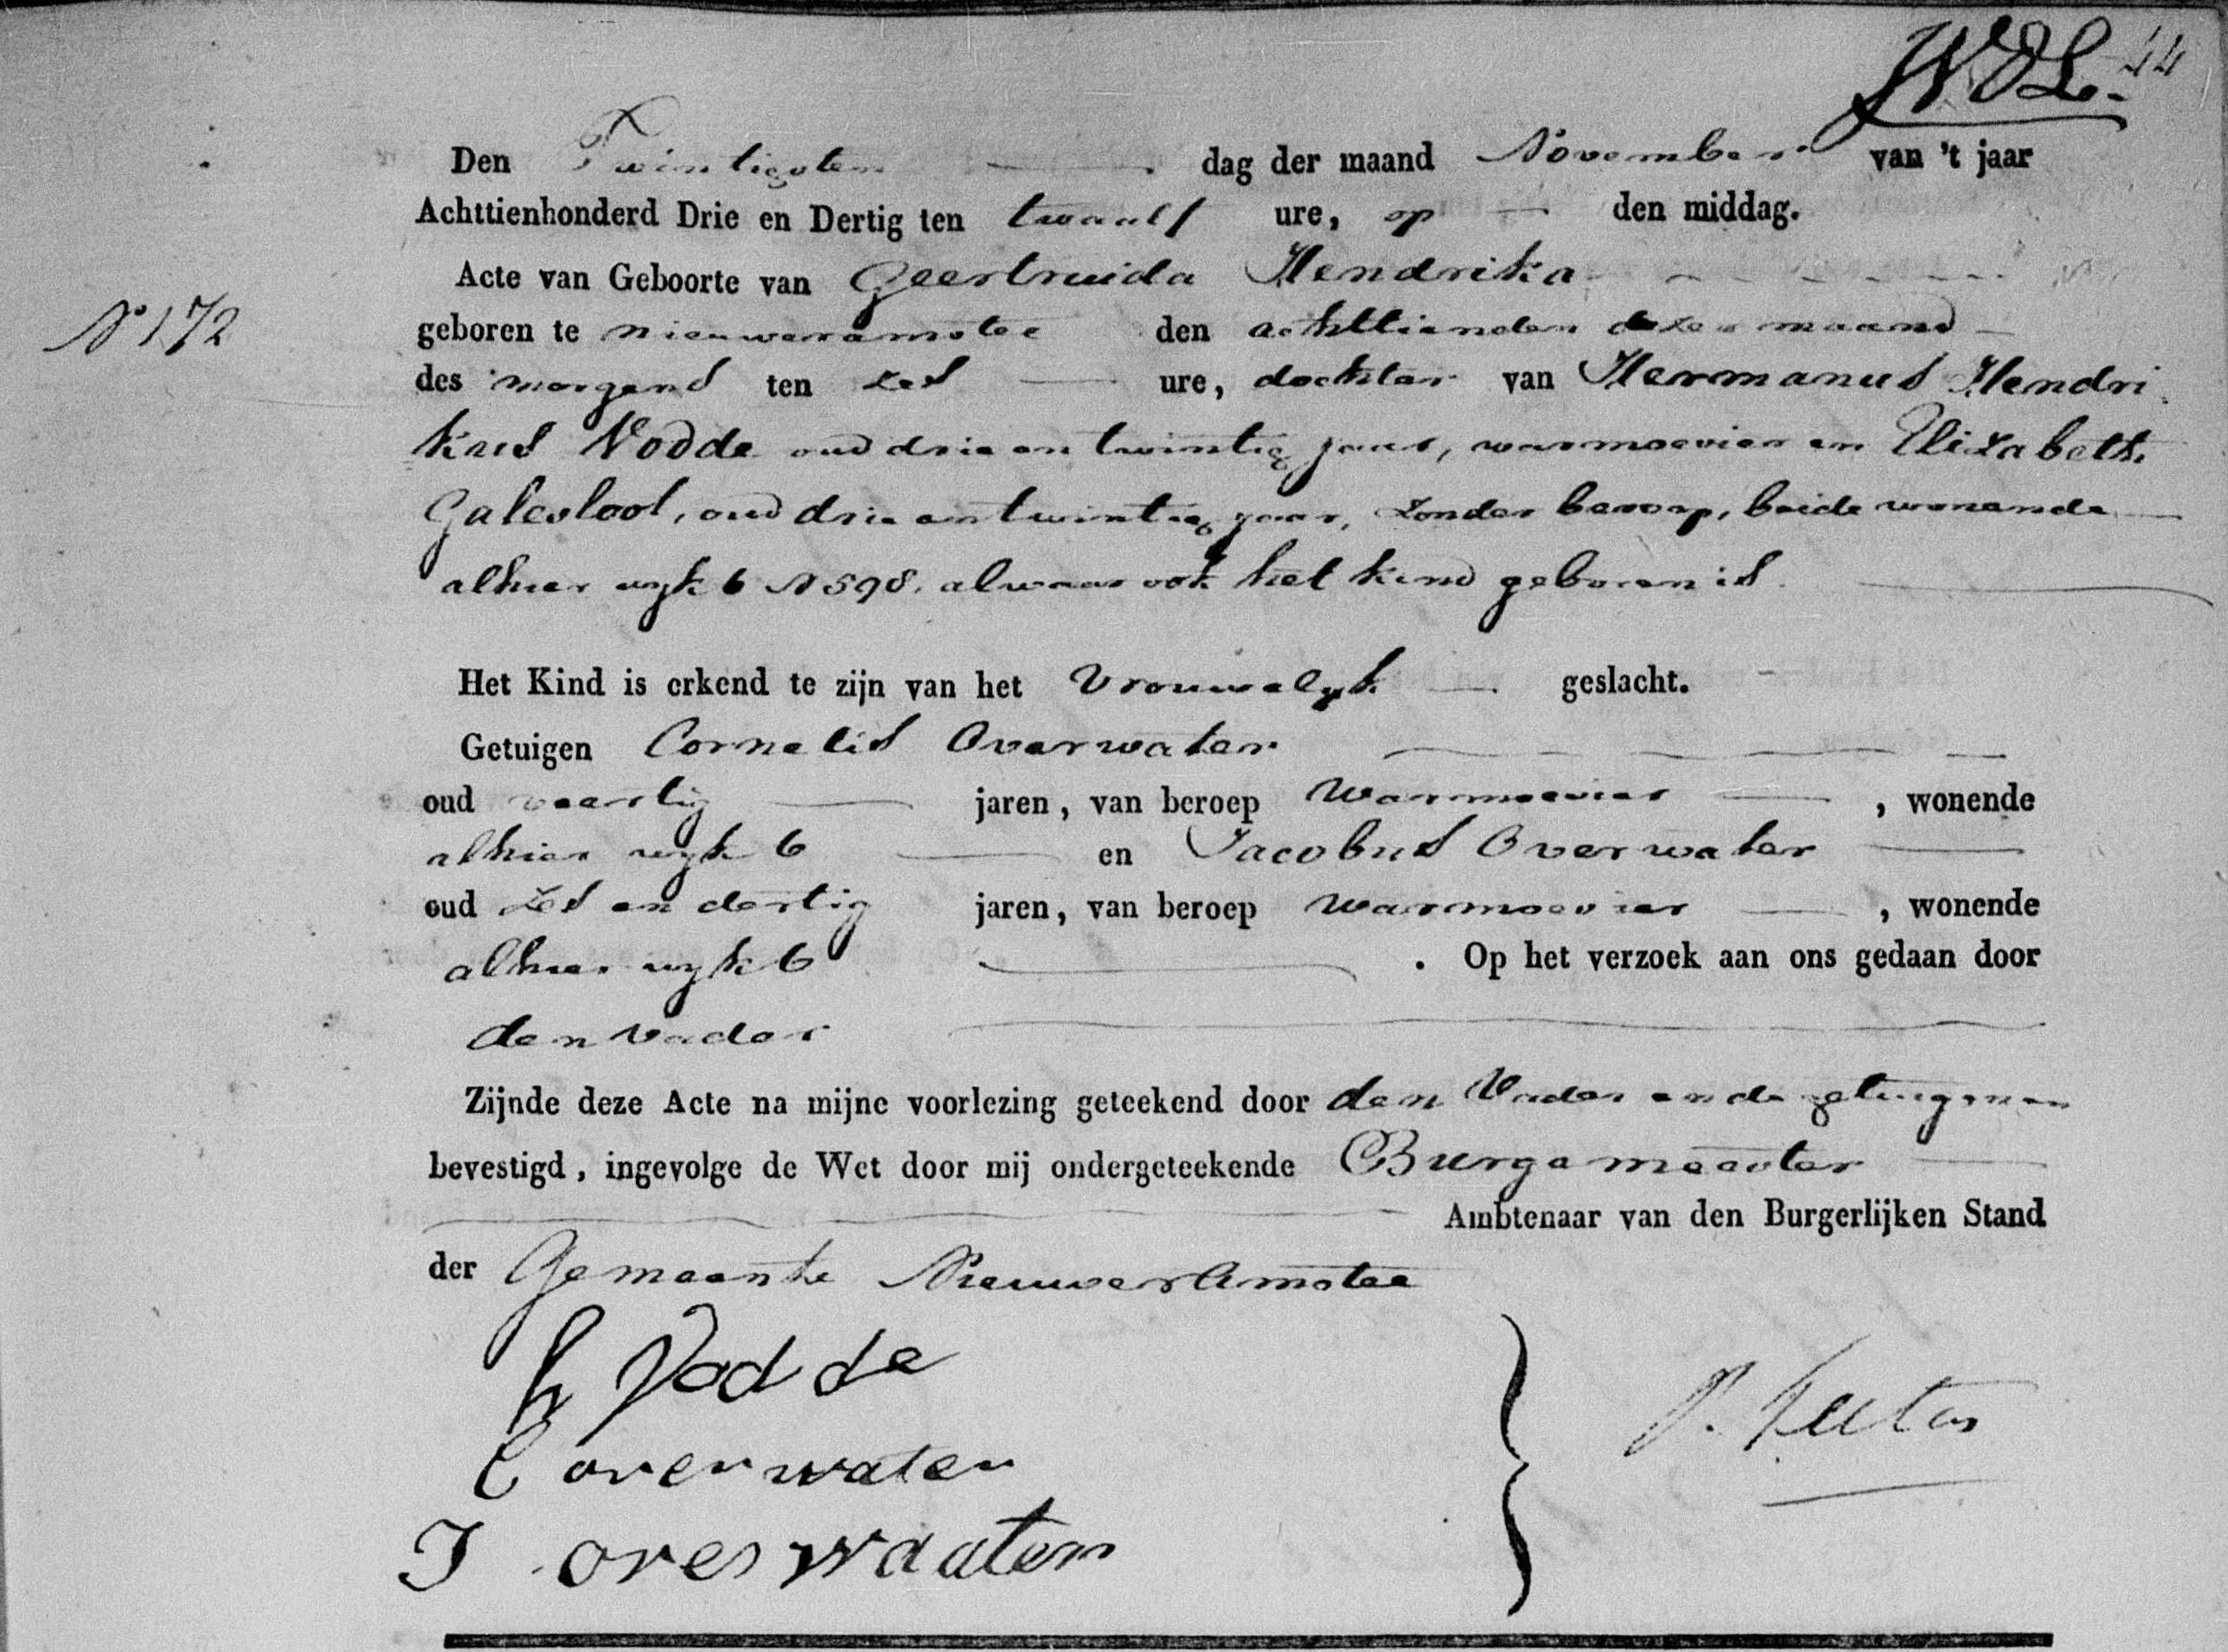 WDL. 44
Den Twintigsten dag der maand November van 't jaar
Achttienhonderd Drie en Dertig ten twaalf ure, op den middag.
Acte van Geboorte van Geertruida Hendrika
N 172
geboren te Nieuweramstel den achttienden dezer maand
des morgens ten zes ure, dochter van Hermanus Hendri
kus Vodde oud drie en twintig jaar, warmoezier en Elizabeth
Galesloot, oud drie en twintig jaar, zonder beroep, beide wonende
alhier wijk 6 N 598, alwaar ook het kind geboren is
Het Kind is erkend te zijn van het Vrouwelyk geslacht.
Getuigen Cornelis Overwater
oud veertig jaren, van beroep Warmoezier, wonende
alhier wijk 6 en Jacobus Overwater
oud zes en dertig jaren, van beroep Warmoezier, wonende
alhier wijk 6 . Op het verzoek aan ons gedaan door
den Vader
Zijnde deze Acte na mijne voorlezing geteekend door den Vader en de getuigen en
bevestigd, ingevolge de Wet door mij ondergeteekende Burgemeester
Ambtenaar van den Burgerlijken Stand
der Gemeente Nieuwer Amstel
h Vodde
C overwater
J overwaater